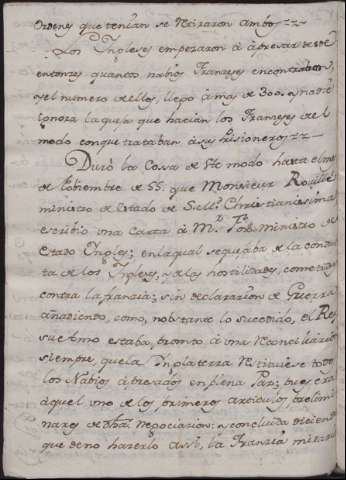 ordenes que tenian se retiraron ambos
Los Yngleses empezaron à apresar desde
entonzes quantos nabios Franzeses encontraban,
y el numero de ellos, llego à mas de 300. y nadie
ignora la quexa que hacian los Franzeses del
modo con que trataban à sus Prisioneros
Duró la Cossa de este modo hasta el mes
de de 55. que Monsieur Rouillé
ministro de Estado de Su Christianissima
escribio una Carta à Mr. Fox ministro de
Estado Yngles; en la qual se quejaba de la conduc
ta de los Yngleses, y de las hostilidades, cometidas
contra la francia; sin declararazion de Guerra
añadiendo, como, no obstante lo sucedido, el Rey
su Amo estaba, pronto à una Reconciliazion
siempre que la Ynglaterra restituiese todos
los Nabios apresados en plena Paz; pues era
aquel uno de los primeros articulos prelimi
nares de dha. Negociacion: y concluida diciendo
que de no hazerlo assi, la Francia miraria